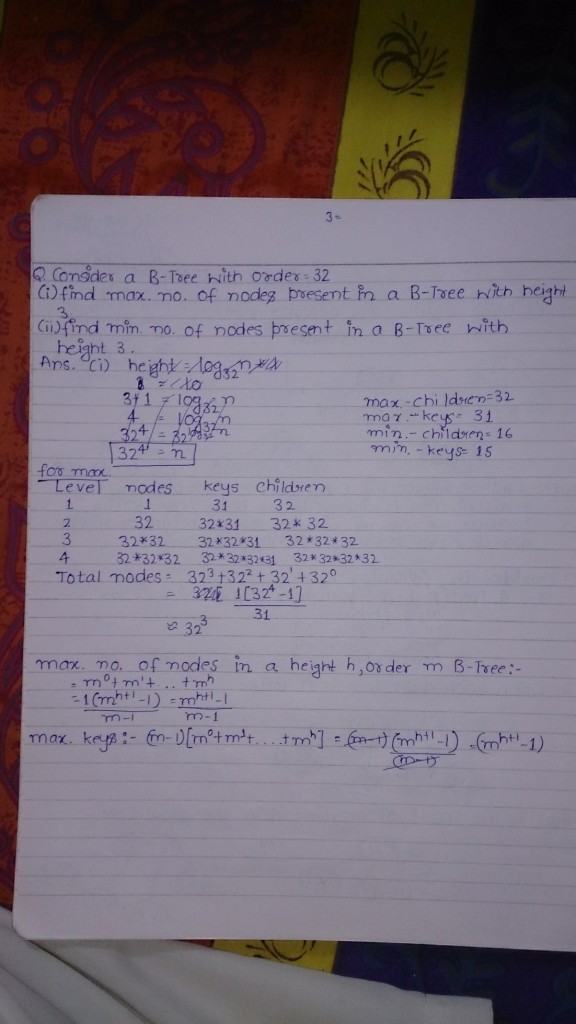 3-
Q. Consider a B-Tree with order = 32
(i) find max. no. of nodes present in a B-Tree with height
3.
(ii) find min. no. of nodes present in a B-Tree with
height 3.
Ans. (i) height = log₃₂n
3+1 = log₃₂n
4 = log₃₂n
32⁴ = 32^log₃₂n
32⁴ = n
max.-children=32
max.-keys= 31
min.-children= 16
min.-keys= 15
for max.
Level nodes keys children
1 1 31 32
2 32 32*31 32*32
3 32*32 32*32*31 32*32*32
4 32*32*32 32*32*32*31 32*32*32*32
Total nodes = 32³+32²+32¹+32⁰
= 1[32⁴-1]
31
≈ 32³
max. no. of nodes in a height h, order m B-Tree:-
= m⁰+m¹+ .. +mʰ
= 1(mʰ⁺¹-1) = mʰ⁺¹-1
m-1 m-1
max. keys:- (m-1)[m⁰+m¹+....+mʰ] = (m-1)(mʰ⁺¹-1) = (mʰ⁺¹-1)
(m-1)